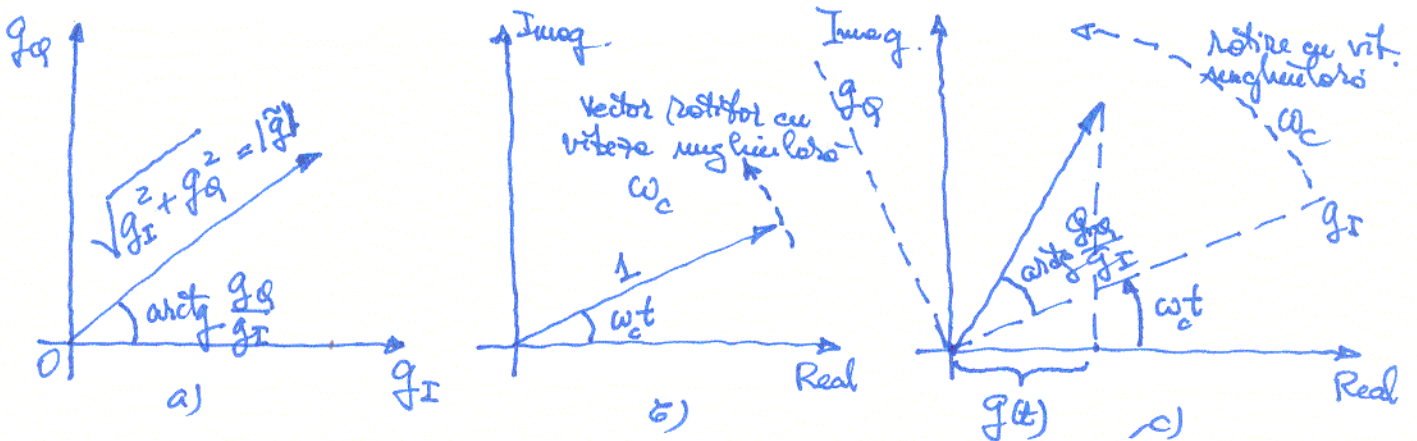 g_Q
√(g_I² + g_Q²) = |g̃|
arctg g_Q/g_I
O
g_I
a)
Imag.
vector rotitor cu
viteza unghiulară
ω_c
1
ω_c t
Real
b)
Imag.
g_Q
rotire cu vit.
unghiulară
ω_c
g_I
arctg g_Q/g_I
ω_c t
Real
g(t)
c)